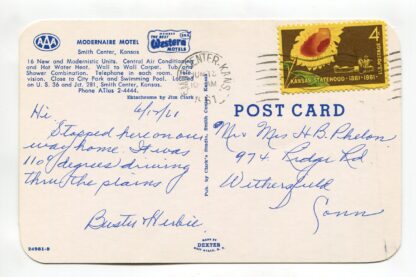 AAA
MODERNAIRE MOTEL
Smith Center, Kansas
16 New and Modernistic Units. Central Air Conditioning
and Hot Water Heat. Wall to Wall Carpet. Tub and
Shower Combination. Telephone in each room. Television.
Close to City Park and Swimming Pool. Located
on U. S. 36 and Jct. 281, Smith Center, Kansas
Phone ATlas 2-4444.
Ektachrome by Jim Clark
Western
MOTELS
CENTER, KANS.
4¢
KANSAS STATEHOOD · 1861-1961
U.S. POSTAGE
6/15/61
Hi,
Stopped here on our
way home. It was
110° degrees driving
thru the plains
Busty & Herbie.
24981-B
Pub. by Clark's Studio, Smith Center, Kansas
POST CARD
Mr & Mrs H.B. Phelon
974 Ridge Rd
Withersfield
Conn
MADE BY
DEXTER